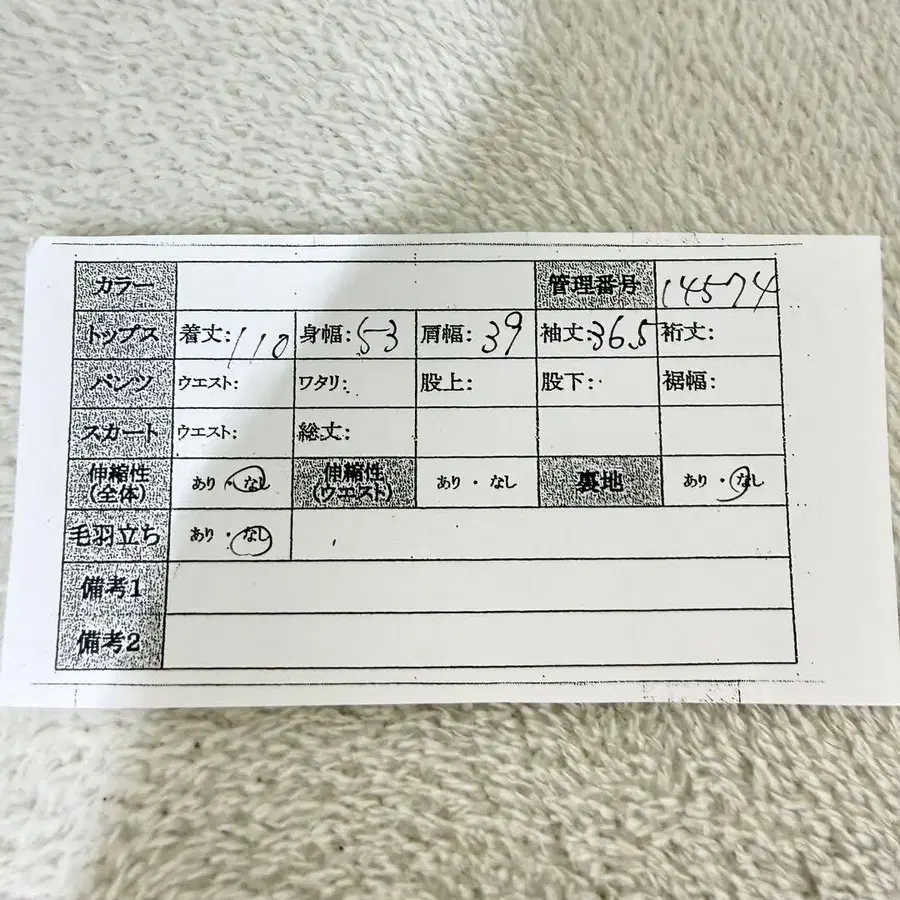 カラー 管理番号 14574
トップス 着丈:110 身幅:53 肩幅:39 袖丈:36.5 裄丈:
パンツ ウエスト: ワタリ: 股上: 股下: 裾幅:
スカート ウエスト: 総丈:
伸縮性(全体) あり・なし 伸縮性(ウエスト) あり・なし 裏地 あり・なし
毛羽立ち あり・なし
備考1
備考2